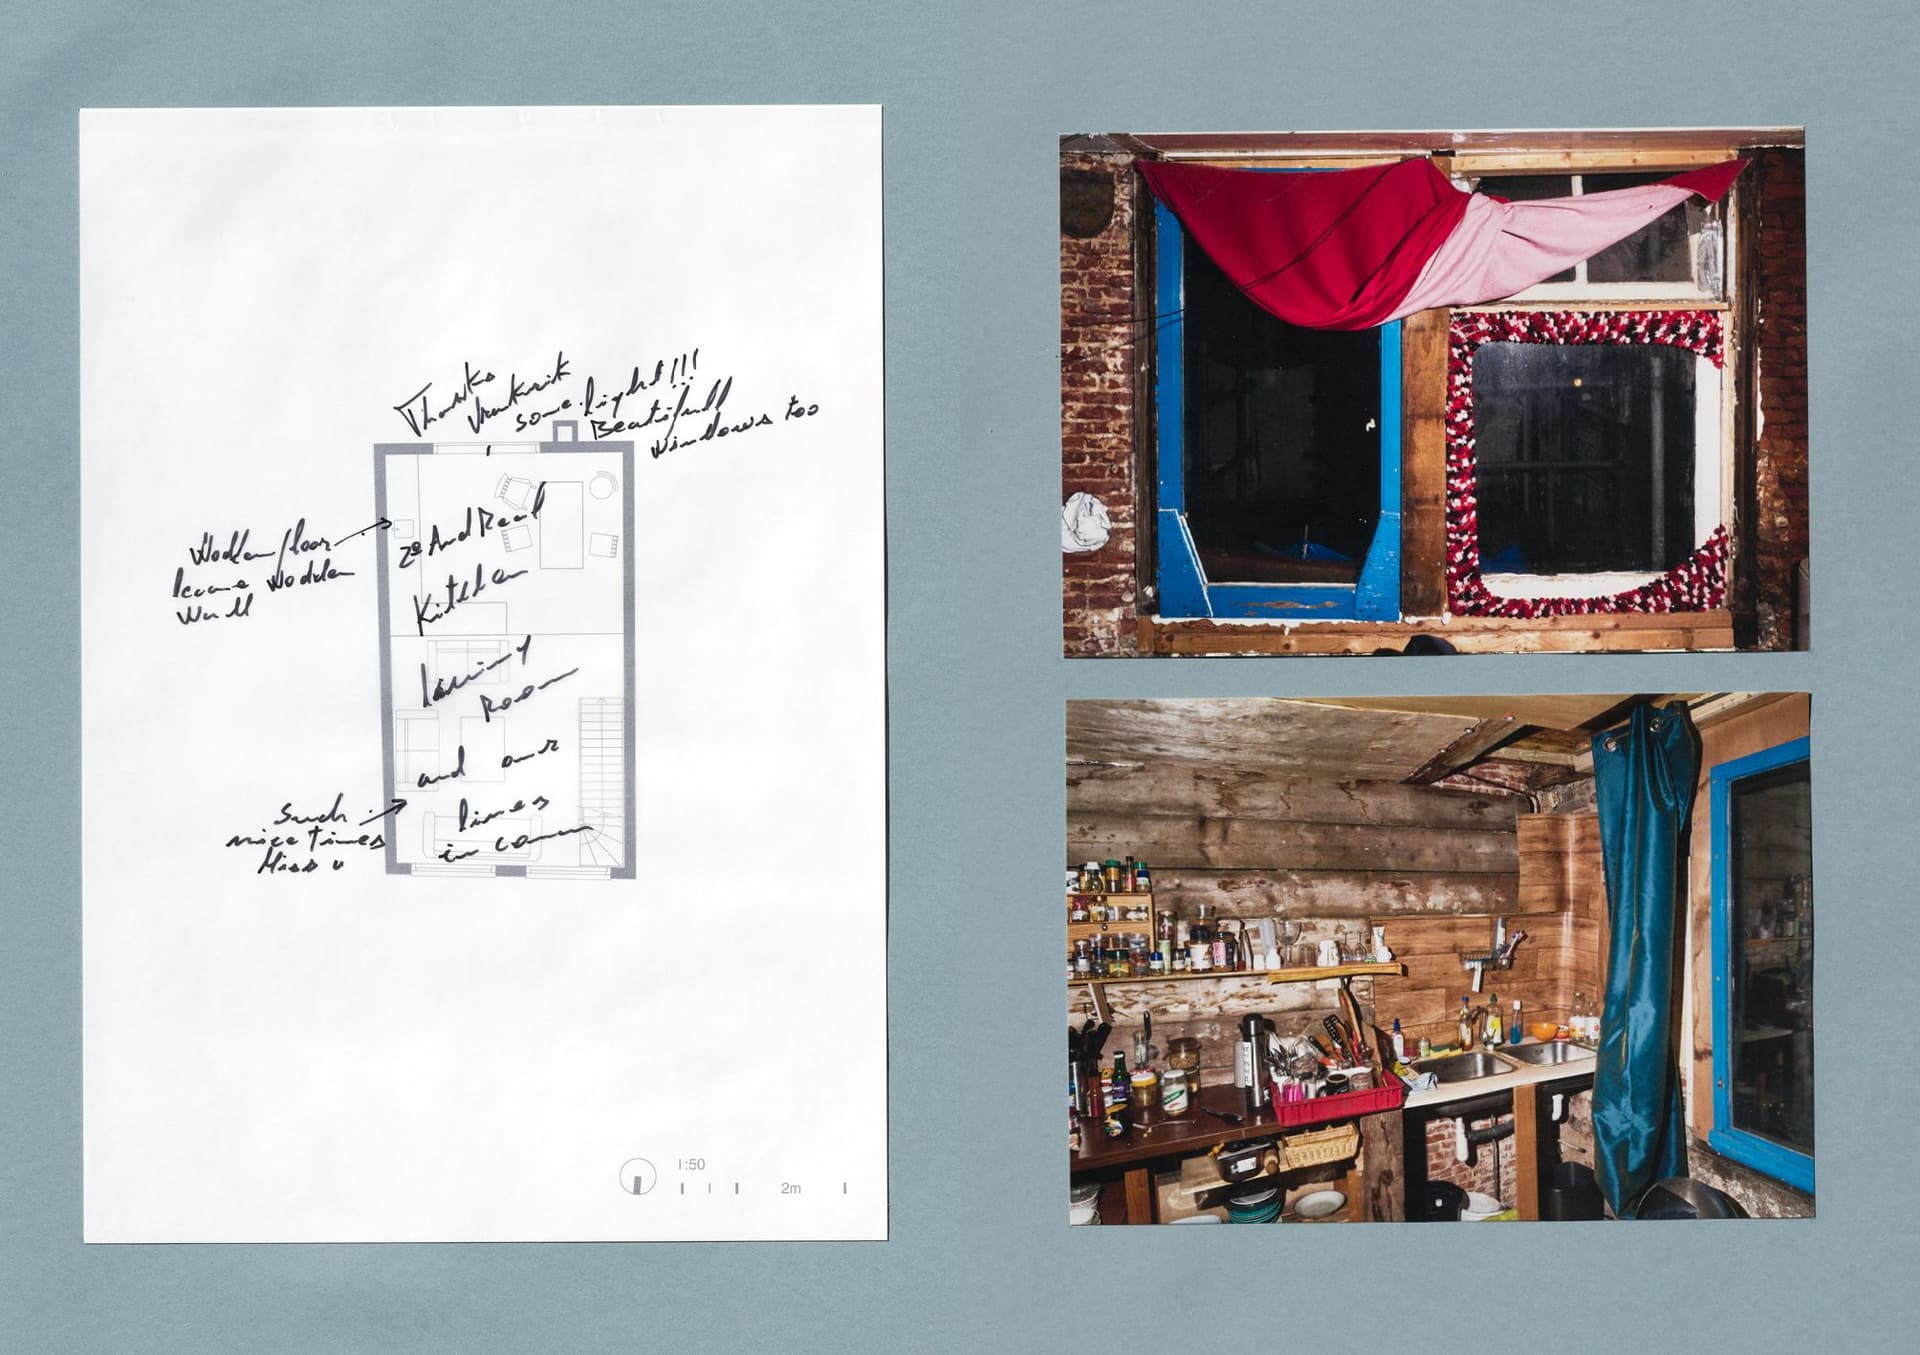 Thanks
some light!!!
Beautifull
windows too
2º And Real
Kitchen
Wodden floor
became Wodden
Wall
Living
Room
and our
lives
in common
Such
nice times
Miss u
1:50
2m